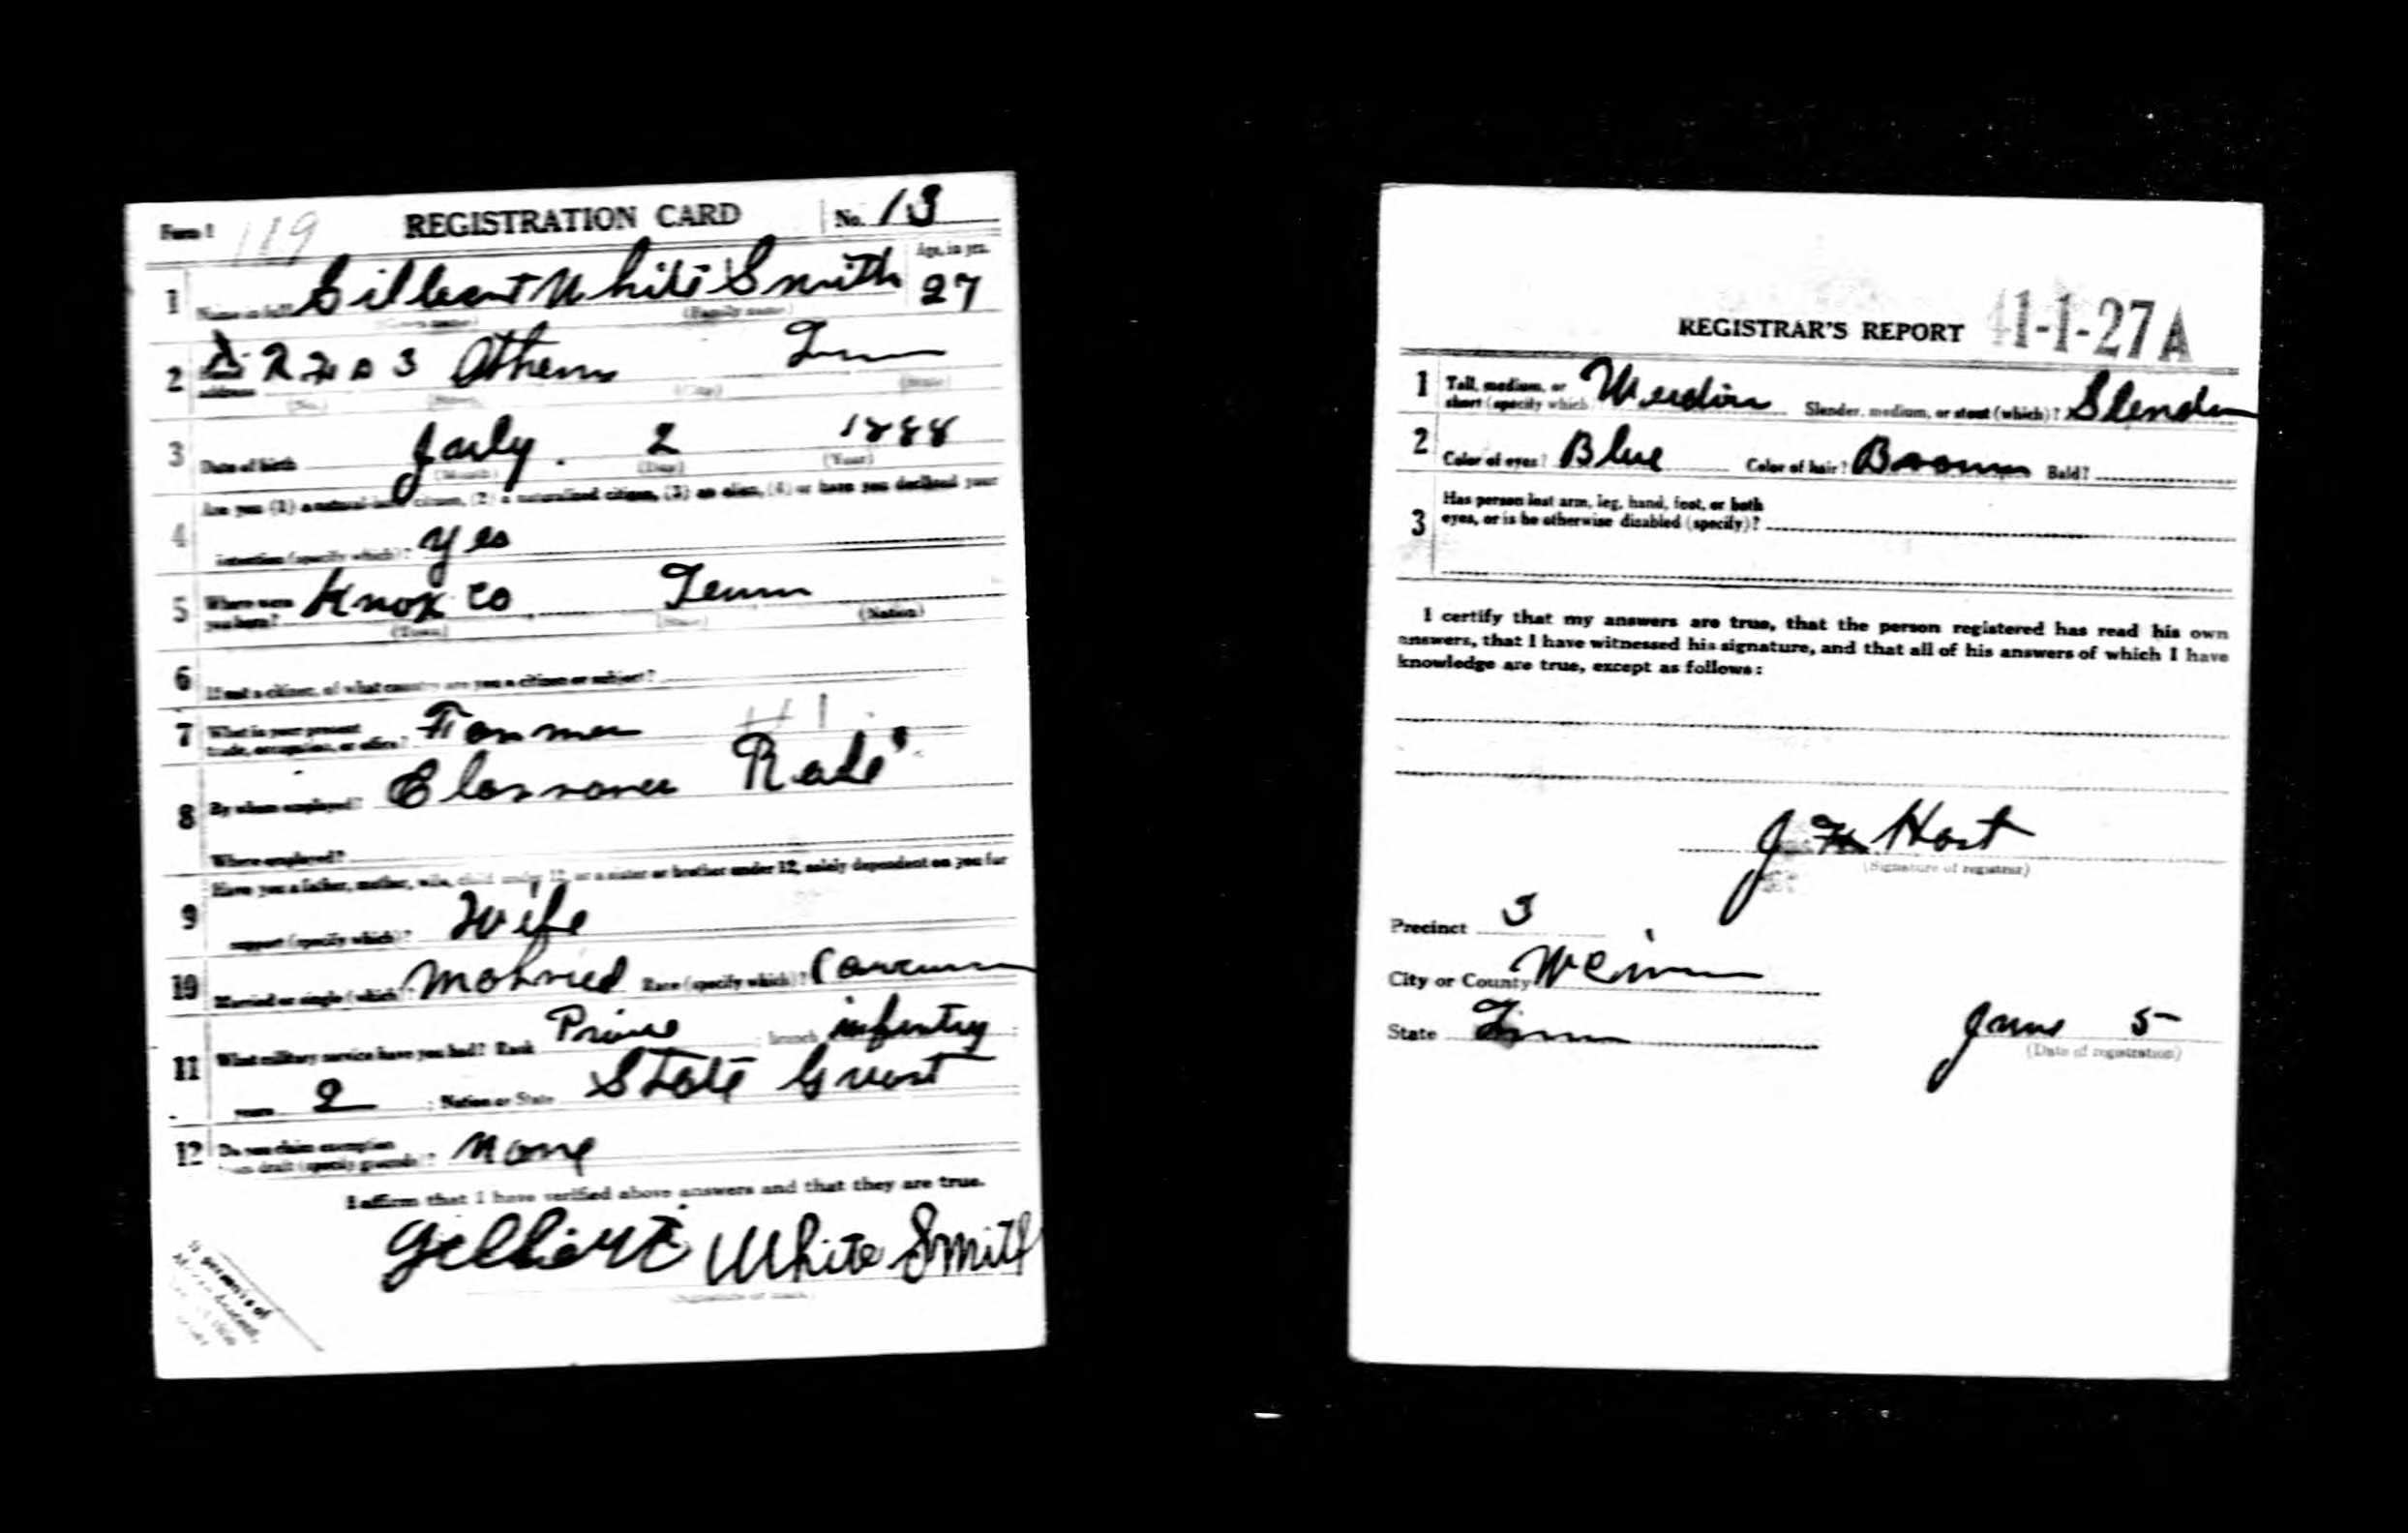 Form 1 119 REGISTRATION CARD No. 13
1 Name in full Gilbert White Smith Age, in yrs. 27
(Given name) (Family name)
2 address 3 Athens Tenn
(No.) (Street) (City) (State)
3 Date of birth July 2 1888
(Month) (Day) (Year)
Are you (1) a natural-born citizen, (2) a naturalized citizen, (3) an alien, (4) or have you declared your
4 intention (specify which)? yes
5 Where were you born? Knox Co Tenn
(Town) (State) (Nation)
6 If not a citizen, of what country are you a citizen or subject?
7 What is your present trade, occupation, or office? Farmer
8 By whom employed?
Where employed?
Have you a father, mother, wife, child under 12, or a sister or brother under 12, solely dependent on you for
9 support (specify which)? Wife
10 Married or single (which)? Married Race (specify which)?
11 What military service have you had? Rank branch infantry
years 2 ; Nation or State State
12 Do you claim exemption from draft (specify grounds)? None
I affirm that I have verified above answers and that they are true.
Gilbert White Smith
REGISTRAR'S REPORT 41-1-27A
1 Tall, medium, or short (specify which) Medium Slender, medium, or stout (which)? Slender
2 Color of eyes? Blue Color of hair? Brown Bald?
3 Has person lost arm, leg, hand, foot, or both
eyes, or is he otherwise disabled (specify)?
I certify that my answers are true, that the person registered has read his own
answers, that I have witnessed his signature, and that all of his answers of which I have
knowledge are true, except as follows:
J Hast
(Signature of registrar)
Precinct 3
City or County
State Tenn June 5
(Date of registration)